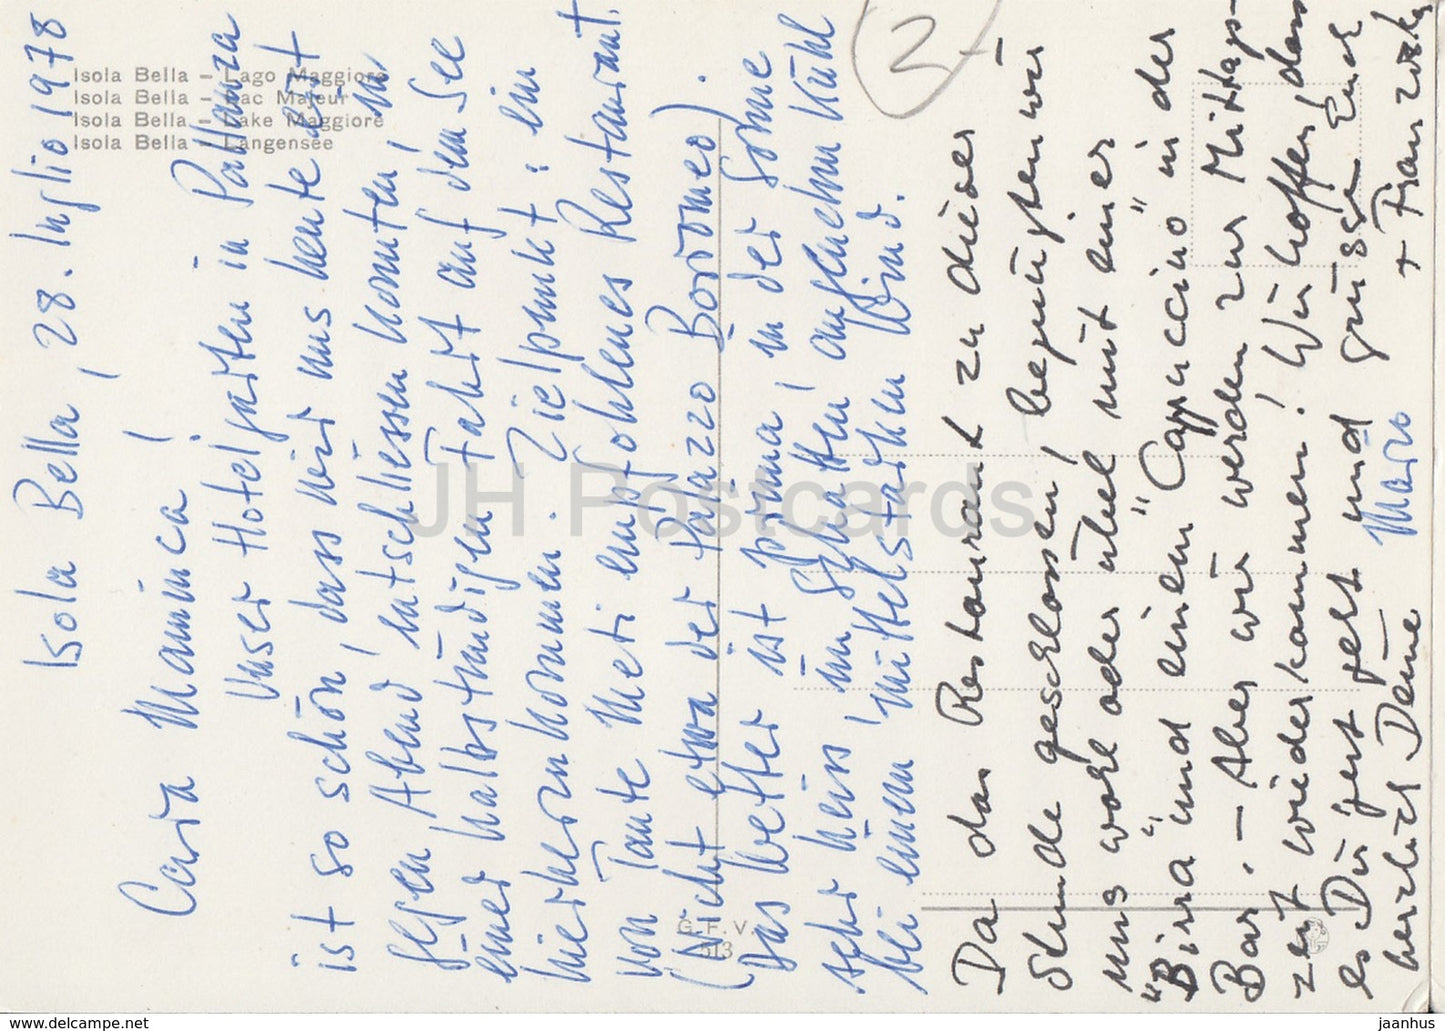 Isola Bella - Lago Maggiore
Isola Bella - Lac Majeur
Isola Bella - Lake Maggiore
Isola Bella - Langensee
Isola Bella, 28. Luglio 1978
Cara Mamma!
Unser Hotelgarten in Pallanza
ist so schön, dass wir uns heute erst
gegen Abend entschliessen konnten, zu
einer halbstündigen Fahrt auf dem See
hierherzukommen. Zielpunkt: ein
von Tante Meti empfohlenes Restaurant.
(Nicht etwa der Palazzo Borromeo).
Das Wetter ist prima, in der Sonne
sehr heiss, im Schatten angenehm kühl
bei einem mittelstarken Wind.
Da das Restaurant zu dieser
Stunde geschlossen, begnügten wir
uns wohl oder übel mit einer
"Birra" und einem "Cappuccino" in der
Bar. - Aber wir werden zur Mittags-
zeit wiederkommen! Wir hoffen, dass
es Dir gut geht und grüssen Euch
herzlich Deine Mario + Franziska
2
G.F.V.
513
JH Postcards
www.delcampe.net
jaanhus